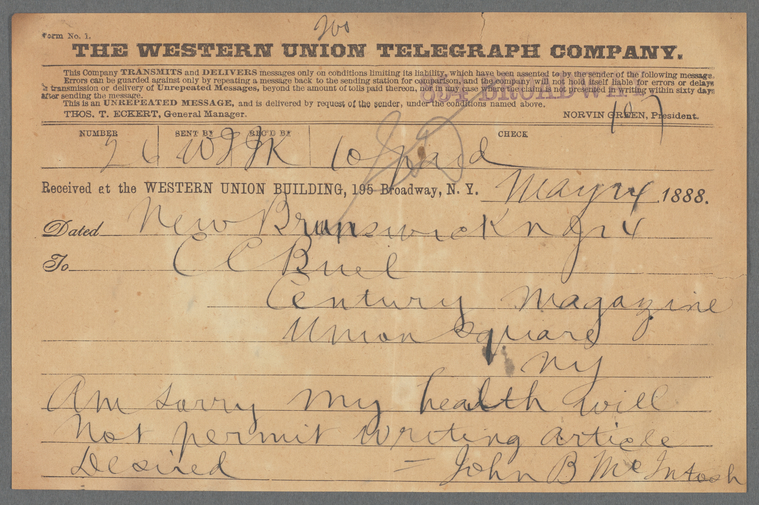 Form No. 1.
THE WESTERN UNION TELEGRAPH COMPANY.
This Company TRANSMITS and DELIVERS messages only on conditions limiting its liability, which have been assented to by the sender of the following message.
Errors can be guarded against only by repeating a message back to the sending station for comparison, and the company will not hold itself liable for errors or delays
in transmission or delivery of Unrepeated Messages, beyond the amount of tolls paid thereon, nor in any case where the claim is not presented in writing within sixty days
after sending the message.
This is an UNREPEATED MESSAGE, and is delivered by request of the sender, under the conditions named above.
THOS. T. ECKERT, General Manager. NORVIN GREEN, President.
107
NUMBER SENT BY REC'D BY CHECK
26 10 paid
Received at the WESTERN UNION BUILDING, 195 Broadway, N. Y. May 4 1888.
Dated New Brunswick NJ 4
To C C Buel
Century Magazine
Union Square
NY
Am sorry my health will
not permit writing article
desired = John B McIntosh